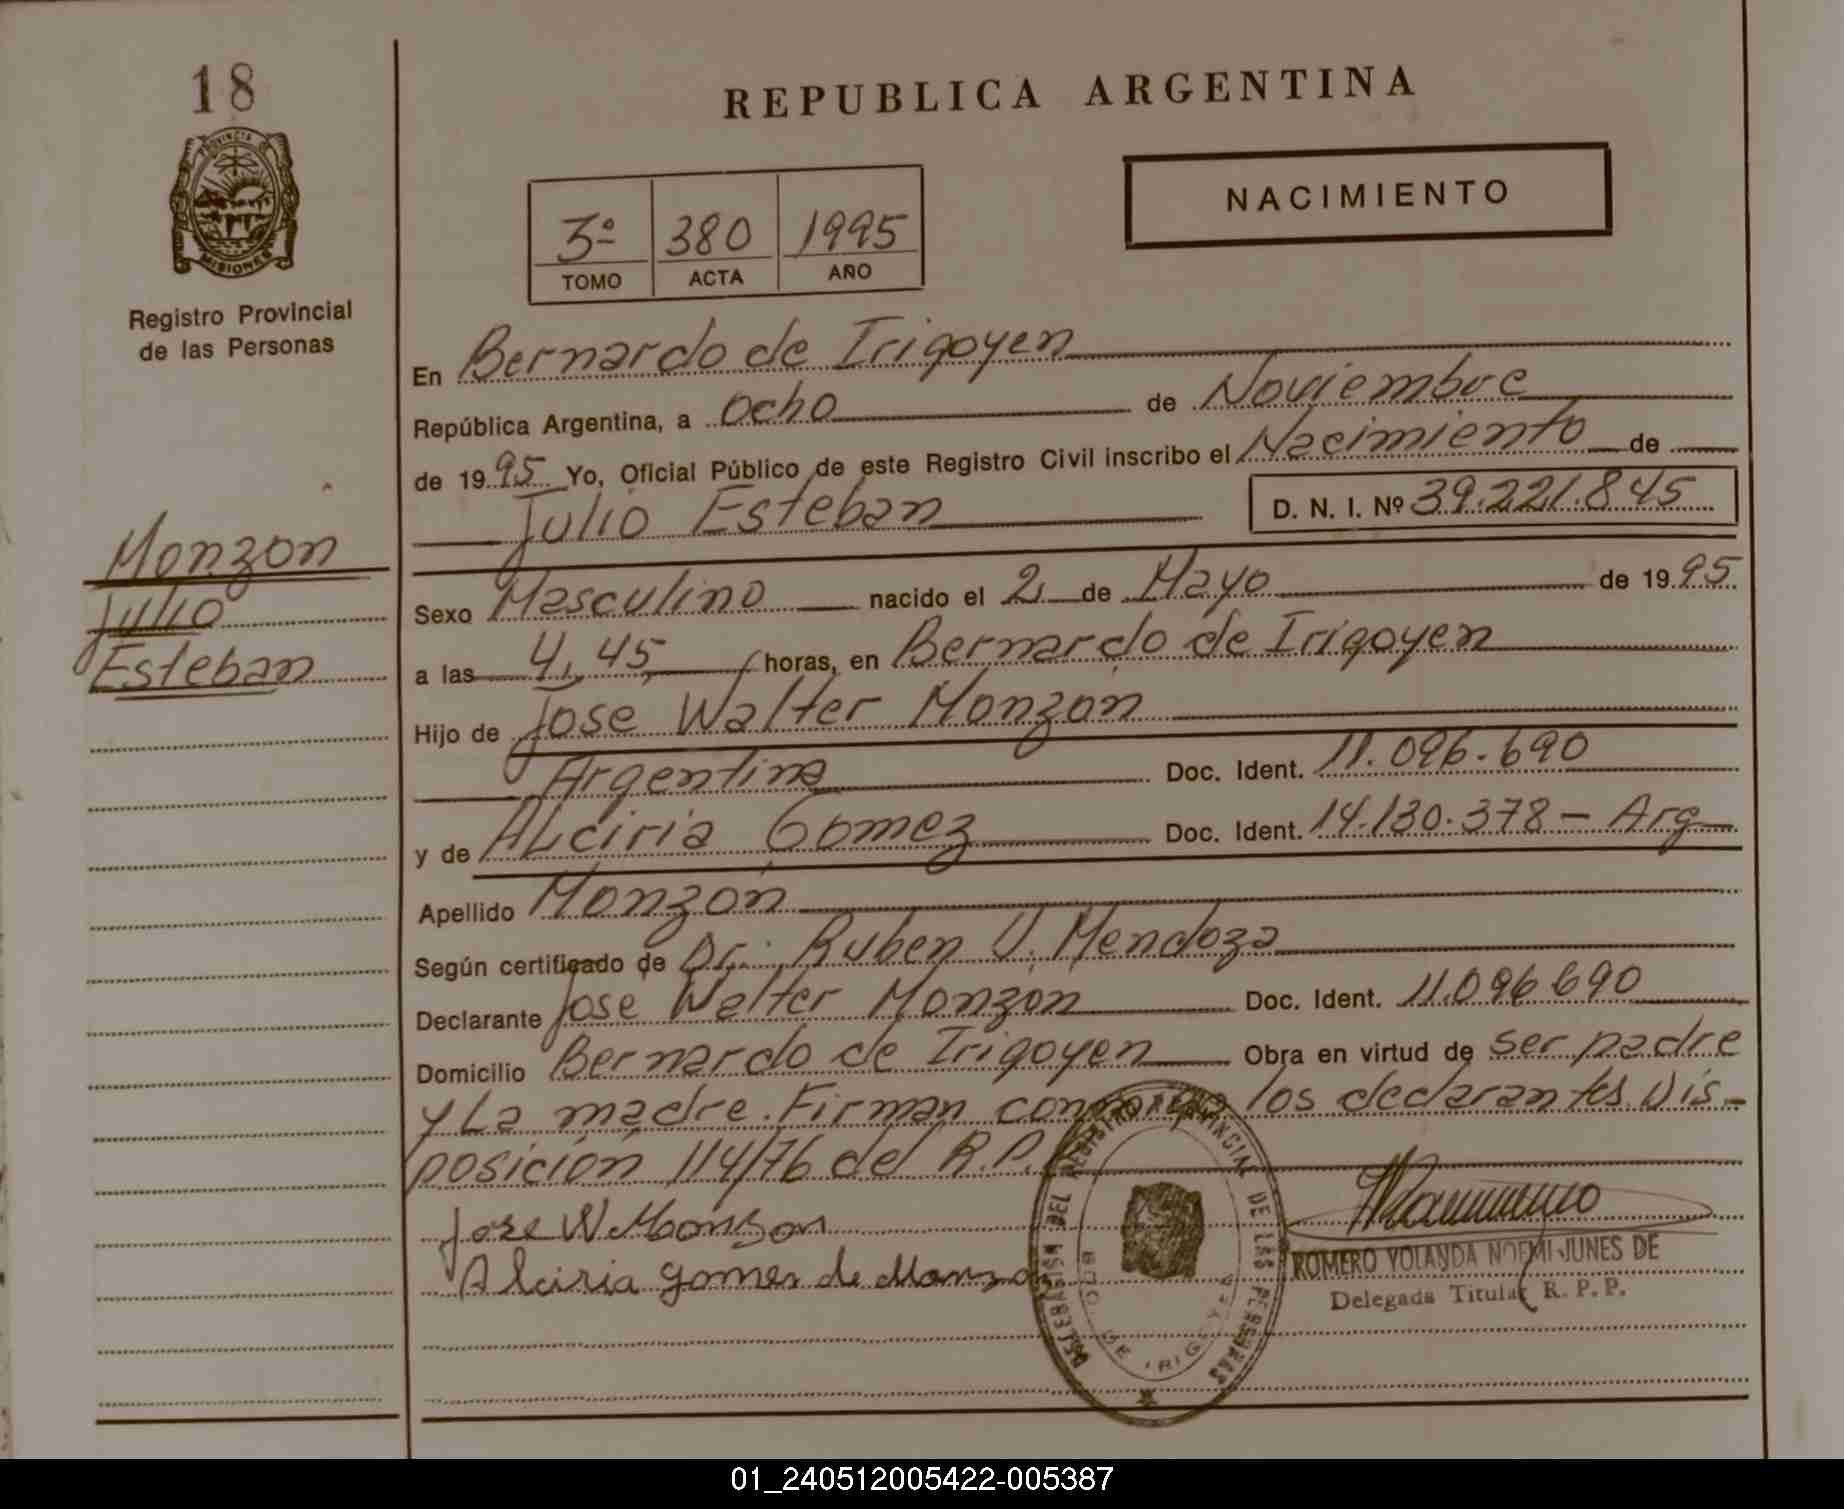 18
REPUBLICA ARGENTINA
PROVINCIA DE
MISIONES
Registro Provincial
de las Personas
NACIMIENTO
3º 380 1995
TOMO ACTA AÑO
En Bernardo de Irigoyen
República Argentina, a ocho de Noviembre
de 1995 Yo, Oficial Público de este Registro Civil inscribo el Nacimiento de
Julio Esteban D. N. I. Nº 39.221.845
Monzon
Julio
Esteban
Sexo Masculino nacido el 2 de Mayo de 1995
a las 4,45 horas, en Bernardo de Irigoyen
Hijo de Jose Walter Monzón
Argentina Doc. Ident. 11.096.690
y de ALciria Gomez Doc. Ident. 14.130.378 - Arg
Apellido Monzón
Según certificado de Dr. Ruben V. Mendoza
Declarante Jose Walter Monzon Doc. Ident. 11.096690
Domicilio Bernardo de Irigoyen Obra en virtud de ser padre
y La madre. Firman conmigo los declarantes. Dis-
posición 114/76 del R.P.P.
Jose W Monzon
Alciria gomes de Monzon
DELEGACION DEL REGISTRO PROVINCIAL DE LAS PERSONAS
BDO. DE IRIGOYEN
ROMERO YOLANDA NOEMI JUNES DE
Delegada Titular R. P. P.
01_240512005422-005387